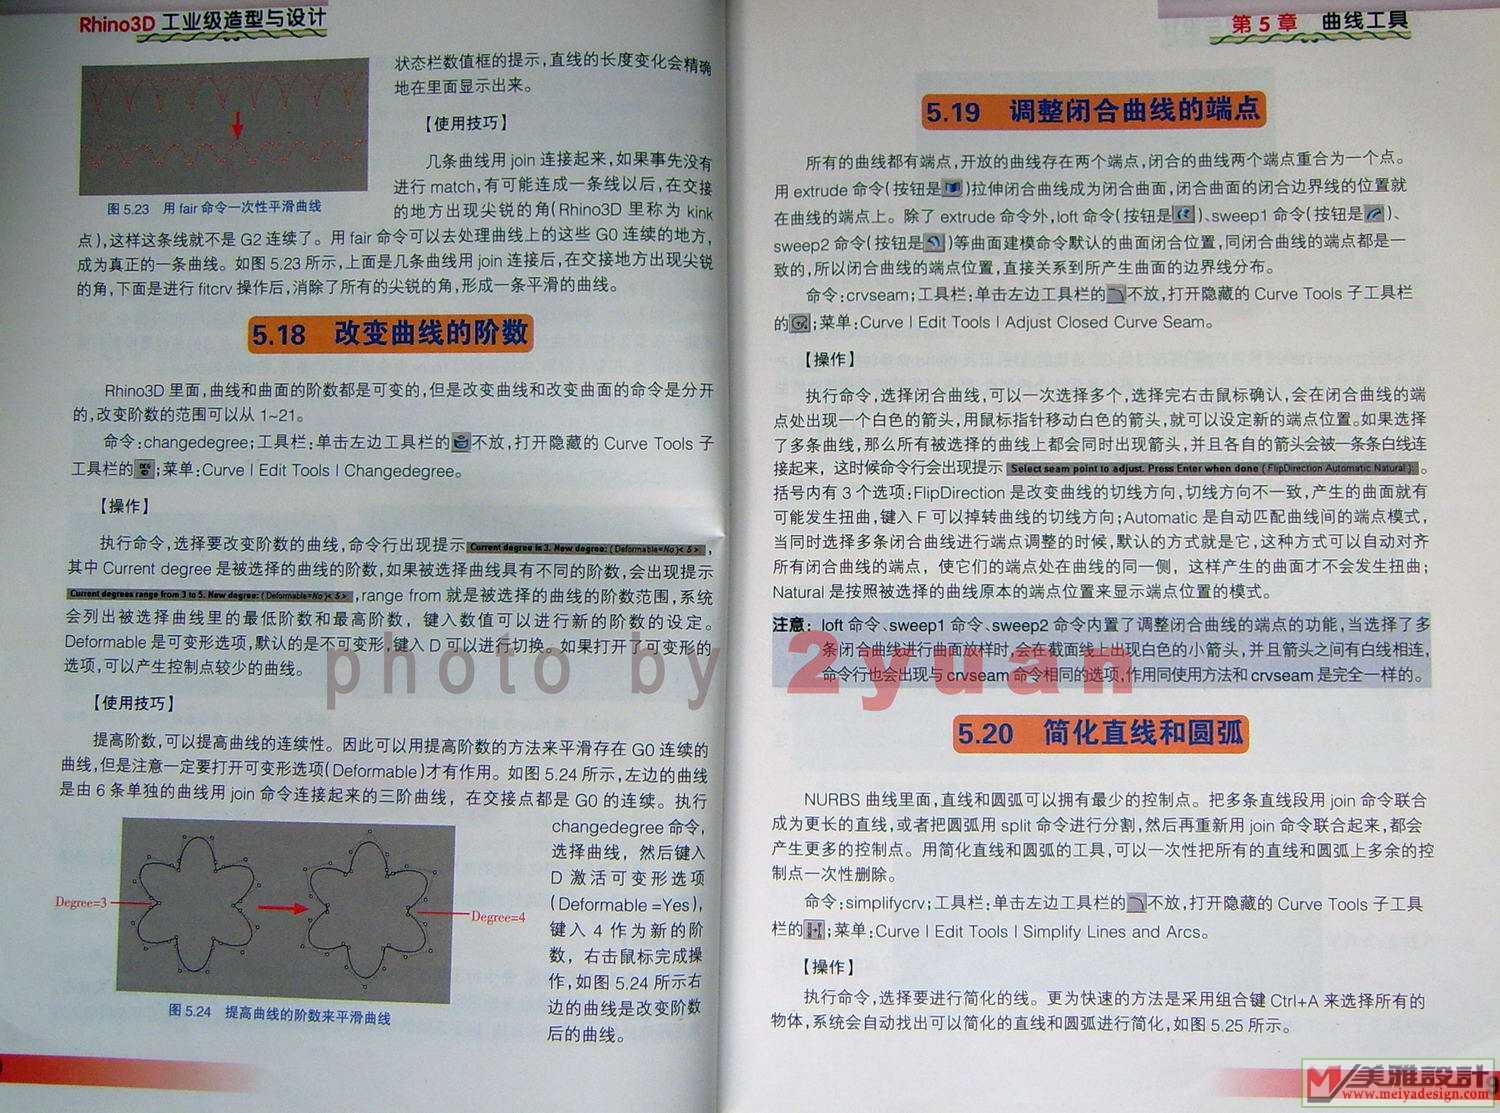 Rhino3D 工业级造型与设计
图 5.23 用 fair 命令一次性平滑曲线
状态栏数值框的提示,直线的长度变化会精确
地在里面显示出来。
【使用技巧】
几条曲线用 join 连接起来,如果事先没有
进行 match,有可能连成一条线以后,在交接
的地方出现尖锐的角(Rhino3D 里称为 kink
点),这样这条线就不是 G2 连续了。用 fair 命令可以去处理曲线上的这些 G0 连续的地方,
成为真正的一条曲线。如图 5.23 所示,上面是几条曲线用 join 连接后,在交接地方出现尖锐
的角,下面是进行 fitcrv 操作后,消除了所有的尖锐的角,形成一条平滑的曲线。
5.18 改变曲线的阶数
Rhino3D 里面,曲线和曲面的阶数都是可变的,但是改变曲线和改变曲面的命令是分开
的,改变阶数的范围可以从 1~21。
命令:changedegree;工具栏:单击左边工具栏的不放,打开隐藏的 Curve Tools 子
工具栏的;菜单:Curve | Edit Tools | Changedegree。
【操作】
执行命令,选择要改变阶数的曲线,命令行出现提示 Current degree is 3. New degree: ( Deformable=No )< 5 > ,
其中 Current degree 是被选择的曲线的阶数,如果被选择曲线具有不同的阶数,会出现提示
Current degrees range from 3 to 5. New degree: ( Deformable=No )< 5 > ,range from 就是被选择的曲线的阶数范围,系统
会列出被选择曲线里的最低阶数和最高阶数，键入数值可以进行新的阶数的设定。
Deformable 是可变形选项,默认的是不可变形,键入 D 可以进行切换。如果打开了可变形的
选项,可以产生控制点较少的曲线。
【使用技巧】
提高阶数,可以提高曲线的连续性。因此可以用提高阶数的方法来平滑存在 G0 连续的
曲线,但是注意一定要打开可变形选项(Deformable)才有作用。如图 5.24 所示,左边的曲线
是由 6 条单独的曲线用 join 命令连接起来的三阶曲线，在交接点都是 G0 的连续。执行
changedegree 命令,
选择曲线，然后键入
D 激活可变形选项
(Deformable =Yes),
键入 4 作为新的阶
数，右击鼠标完成操
作,如图 5.24 所示右
边的曲线是改变阶数
后的曲线。
Degree=3
Degree=4
图 5.24 提高曲线的阶数来平滑曲线
第 5 章 曲线工具
5.19 调整闭合曲线的端点
所有的曲线都有端点,开放的曲线存在两个端点,闭合的曲线两个端点重合为一个点。
用 extrude 命令(按钮是)拉伸闭合曲线成为闭合曲面,闭合曲面的闭合边界线的位置就
在曲线的端点上。除了 extrude 命令外,loft 命令(按钮是)、sweep1 命令(按钮是)、
sweep2 命令(按钮是)等曲面建模命令默认的曲面闭合位置,同闭合曲线的端点都是一
致的,所以闭合曲线的端点位置,直接关系到所产生曲面的边界线分布。
命令:crvseam;工具栏:单击左边工具栏的不放,打开隐藏的 Curve Tools 子工具栏
的;菜单:Curve | Edit Tools | Adjust Closed Curve Seam。
【操作】
执行命令,选择闭合曲线,可以一次选择多个,选择完右击鼠标确认,会在闭合曲线的端
点处出现一个白色的箭头,用鼠标指针移动白色的箭头,就可以设定新的端点位置。如果选择
了多条曲线,那么所有被选择的曲线上都会同时出现箭头,并且各自的箭头会被一条条白线连
接起来，这时候命令行会出现提示 Select seam point to adjust. Press Enter when done ( FlipDirection Automatic Natural ): 。
括号内有 3 个选项:FlipDirection 是改变曲线的切线方向,切线方向不一致,产生的曲面就有
可能发生扭曲,键入 F 可以掉转曲线的切线方向;Automatic 是自动匹配曲线间的端点模式,
当同时选择多条闭合曲线进行端点调整的时候,默认的方式就是它,这种方式可以自动对齐
所有闭合曲线的端点，使它们的端点处在曲线的同一侧，这样产生的曲面才不会发生扭曲;
Natural 是按照被选择的曲线原本的端点位置来显示端点位置的模式。
注意: loft 命令、sweep1 命令、sweep2 命令内置了调整闭合曲线的端点的功能,当选择了多
条闭合曲线进行曲面放样时,会在截面线上出现白色的小箭头,并且箭头之间有白线相连,
命令行也会出现与 crvseam 命令相同的选项,作用同使用方法和 crvseam 是完全一样的。
5.20 简化直线和圆弧
NURBS 曲线里面,直线和圆弧可以拥有最少的控制点。把多条直线段用 join 命令联合
成为更长的直线,或者把圆弧用 split 命令进行分割,然后再重新用 join 命令联合起来,都会
产生更多的控制点。用简化直线和圆弧的工具,可以一次性把所有的直线和圆弧上多余的控
制点一次性删除。
命令:simplifycrv;工具栏:单击左边工具栏的不放,打开隐藏的 Curve Tools 子工具
栏的;菜单:Curve | Edit Tools | Simplify Lines and Arcs。
【操作】
执行命令,选择要进行简化的线。更为快速的方法是采用组合键 Ctrl+A 来选择所有的
物体,系统会自动找出可以简化的直线和圆弧进行简化,如图 5.25 所示。
photo by 2yuan
美雅設計
www.meiyadesign.com